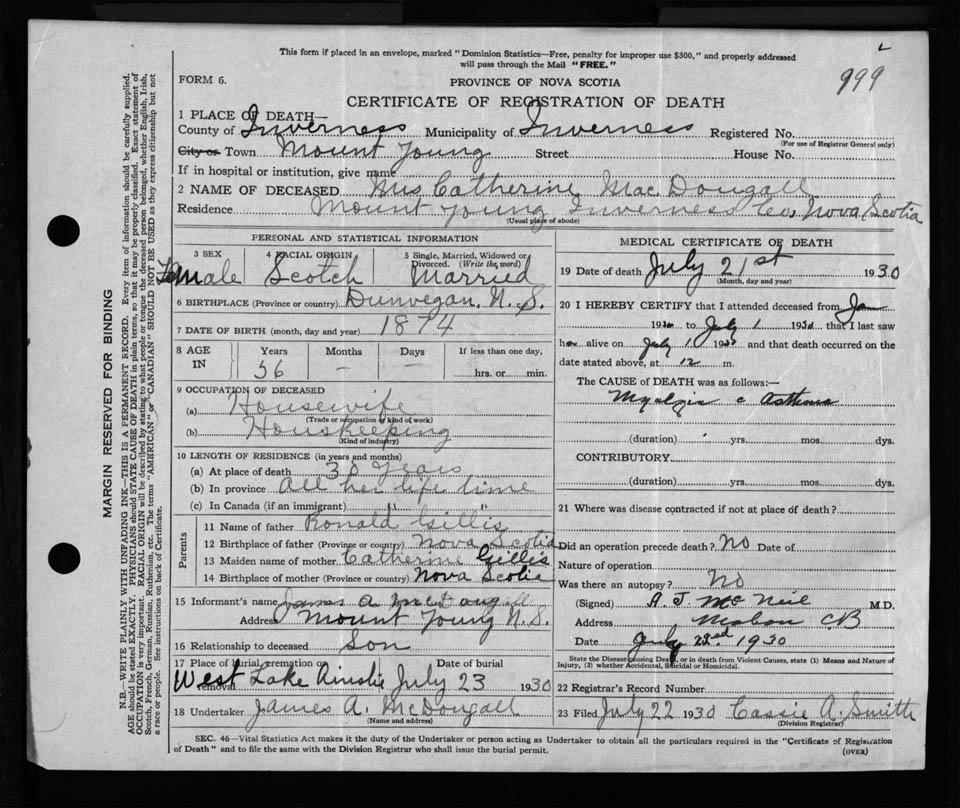 This form if placed in an envelope, marked "Dominion Statistics—Free, penalty for improper use $300," and properly addressed
will pass through the Mail "FREE."
999
FORM 6.
PROVINCE OF NOVA SCOTIA
CERTIFICATE OF REGISTRATION OF DEATH
1 PLACE OF DEATH—
County of Inverness Municipality of Inverness Registered No.
(For use of Registrar General only)
City or Town Mount Young Street House No.
If in hospital or institution, give name
2 NAME OF DECEASED Mrs Catherine MacDougall
Residence Mount Young Inverness Co, Nova Scotia
(Usual place of abode)
PERSONAL AND STATISTICAL INFORMATION
3 SEX 4 RACIAL ORIGIN 5 Single, Married, Widowed or Divorced. (Write the word)
Female Scotch Married
6 BIRTHPLACE (Province or country) Dunvegan, N.S.
7 DATE OF BIRTH (month, day and year) 1874
8 AGE IN Years Months Days If less than one day,
56 — — hrs. or min.
9 OCCUPATION OF DECEASED
(a) Housewife
(Trade or occupation or kind of work)
(b) Houskeeping
(Kind of industry)
10 LENGTH OF RESIDENCE (in years and months)
(a) At place of death 30 Years
(b) In province All her life time
(c) In Canada (if an immigrant) " "
Parents
11 Name of father Ronald Gillis
12 Birthplace of father (Province or country) Nova Scotia
13 Maiden name of mother Catherine Gillis
14 Birthplace of mother (Province or country) Nova Scotia
15 Informant's name James A. McDougall
Address Mount Young N.S.
16 Relationship to deceased Son
17 Place of burial, cremation or removal Date of burial
West Lake Ainslie July 23 1930
18 Undertaker James A. McDougall
(Name and address)
MEDICAL CERTIFICATE OF DEATH
19 Date of death July 21st 1930
(Month, day and year)
20 I HEREBY CERTIFY that I attended deceased from Jan
19 to July 1 1930 that I last saw
her alive on July 1 1930 and that death occurred on the
date stated above, at 12 m.
The CAUSE of DEATH was as follows:—
c Asthma
(duration) yrs. mos. dys.
CONTRIBUTORY
(duration) yrs. mos. dys.
21 Where was disease contracted if not at place of death?
Did an operation precede death? No Date of
Nature of operation
Was there an autopsy? No
(Signed) A. J. McNeil M.D.
Address Mabou CB
Date July 22nd 1930
State the Disease causing Death, or in death from Violent Causes, state (1) Means and Nature of
Injury, (2) whether Accidental, Suicidal or Homicidal.
22 Registrar's Record Number
23 Filed July 22 1930 Cassie A. Smith
(Division Registrar)
SEC. 46—Vital Statistics Act makes it the duty of the Undertaker or person acting as Undertaker to obtain all the particulars required in the "Certificate of Registration
of Death" and to file the same with the Division Registrar who shall issue the burial permit.
(OVER)
MARGIN RESERVED FOR BINDING
N.B.—WRITE PLAINLY WITH UNFADING INK—THIS IS A PERMANENT RECORD. Every item of information should be carefully supplied.
AGE should be stated EXACTLY. PHYSICIANS should STATE CAUSE OF DEATH in plain terms, so that it may be properly classified. Exact statement of
OCCUPATION is very important. RACIAL ORIGIN will be described by stating to what people or tongue the deceased person belonged, whether English, Irish,
Scotch, French, German, Russian, Ruthenian, etc. The terms "AMERICAN" or "CANADIAN" SHOULD NOT BE USED as they express citizenship but not
a race or people. See instructions on back of Certificate.